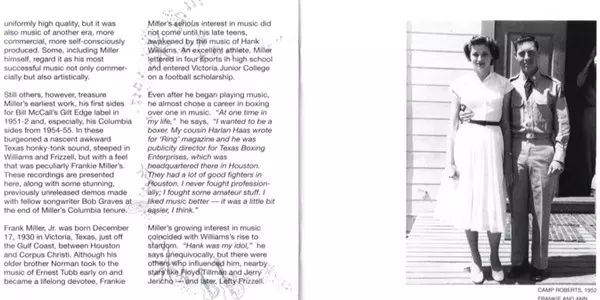 uniformly high quality, but it was
also music of another era, more
commercial, more self-consciously
produced. Some, including Miller
himself, regard it as his most
successful music not only commer-
cially but also artistically.
Still others, however, treasure
Miller's earliest work, his first sides
for Bill McCall's Gilt Edge label in
1951-2 and, especially, his Columbia
sides from 1954-55. In these
burgeoned a nascent awkward
Texas honky-tonk sound, steeped in
Williams and Frizzell, but with a feel
that was peculiarly Frankie Miller's.
These recordings are presented
here, along with some stunning,
previously unreleased demos made
with fellow songwriter Bob Graves at
the end of Miller's Columbia tenure.
Frank Miller, Jr. was born December
17, 1930 in Victoria, Texas, just off
the Gulf Coast, between Houston
and Corpus Christi. Although his
older brother Norman took to the
music of Ernest Tubb early on and
became a lifelong devotee, Frankie
Miller's serious interest in music did
not come until his late teens,
awakened by the music of Hank
Williams. An excellent athlete, Miller
lettered in four sports in high school
and entered Victoria Junior College
on a football scholarship.
Even after he began playing music,
he almost chose a career in boxing
over one in music. "At one time in
my life," he says, "I wanted to be a
boxer. My cousin Harlan Haas wrote
for 'Ring' magazine and he was
publicity director for Texas Boxing
Enterprises, which was
headquartered there in Houston.
They had a lot of good fighters in
Houston. I never fought profession-
ally; I fought some amateur stuff. I
liked music better — it was a little bit
easier, I think."
Miller's growing interest in music
coincided with Williams's rise to
stardom. "Hank was my idol," he
says unequivocally, but there were
others who influenced him, nearby
stars like Floyd Tillman and Jerry
Jericho — and later, Lefty Frizzell.
CAMP ROBERTS, 1952
FRANKIE AND ANN